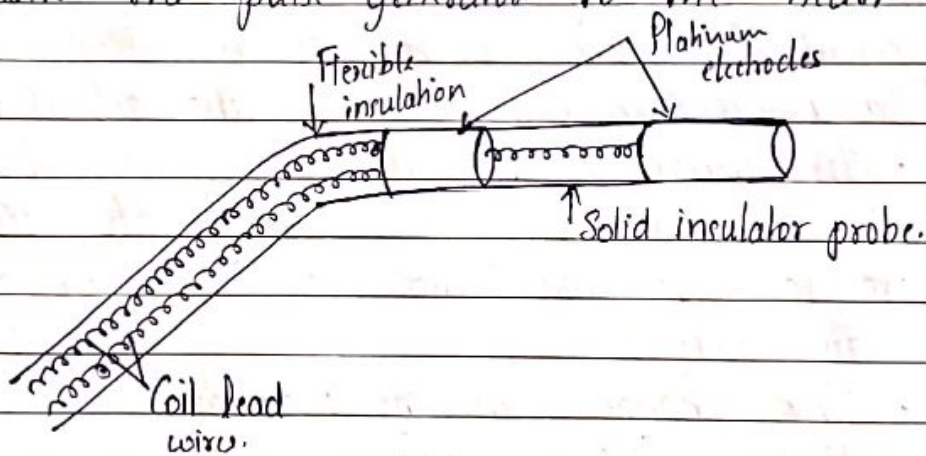 the pulse generator to the
Flexible
insulation
Platinum
electrodes
Solid insulator probe.
Coil lead
wire.